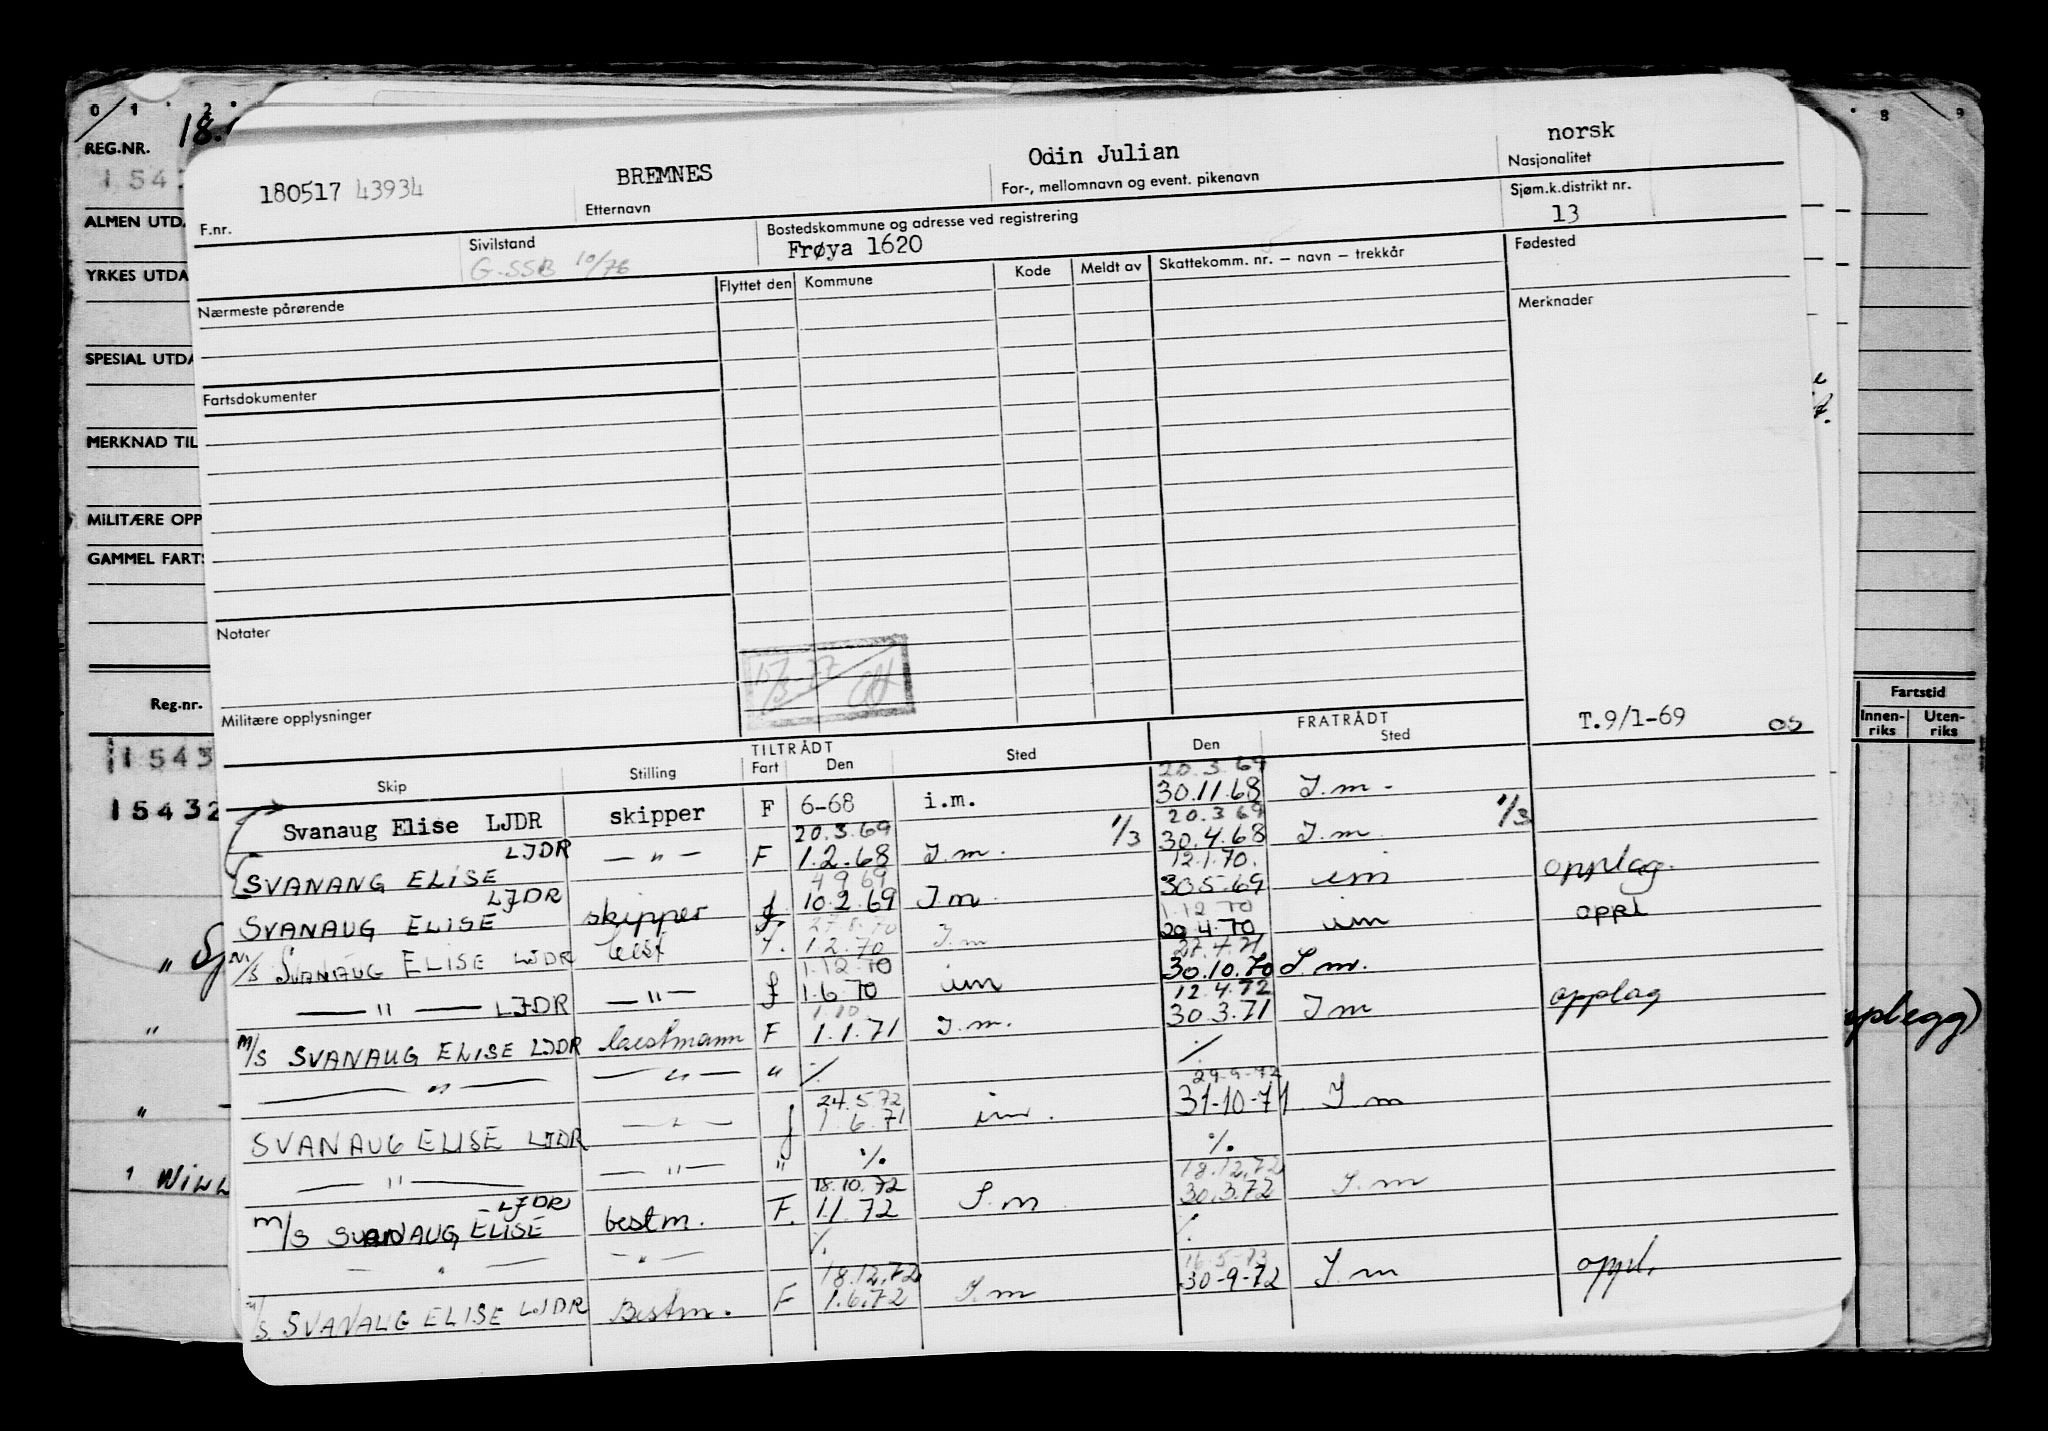 0 1 2 8 9
REG.NR. 18.
1543
ALMEN UTDA
YRKES UTDA
SPESIAL UTDA
MERKNAD TIL
MILITÆRE OPP
GAMMEL FARTS
Reg.nr.
1543
15432
" WILL
Fartstid
Innen-riks Uten-riks
pplegg)
180517 43934 BREMNES Odin Julian norsk
F.nr. Etternavn For-, mellomnavn og event. pikenavn Nasjonalitet
Sivilstand Bostedskommune og adresse ved registrering Sjøm.k.distrikt nr.
G.SSB 10/76 Frøya 1620 13
Nærmeste pårørende Flyttet den Kommune Kode Meldt av Skattekomm. nr. – navn – trekkår Fødested
Merknader
Fartsdokumenter
Notater
15/3-77
Militære opplysninger
T.9/1-69 os
TILTRÅDT FRATRÅDT
Skip Stilling Fart Den Sted Den Sted
20.3.69
Svanaug Elise LJDR skipper F 6-68 i.m. 30.11.68 I.m.
20.3.69 20.3.69
SVANANG ELISE LJDR — " — F 1.2.68 I.m. 1/3 30.4.68 I.m. 1/3
4 9 69 12.1.70.
SVANAUG ELISE LJDR skipper f 10.2.69 I m 30.5.69 im opplag.
27.8.70 1.12 70
M/S SVANAUG ELISE LJDR best F. 1.2.70 I.m 20.4.70 im oppl
1.12.70 27.4.71
— " — LJDR — " — f 1.6.70 im 30.10.70 I.m.
1.10 12.4.72
M/S SVANAUG ELISE LJDR bestmann F 1.1.71 I.m. 30.3.71 I m opplag
— " — — " — " ./. ./.
24.5.72 29.9.72
SVANAUG ELISE LJDR — " — f 1.6.71 im. 31-10-71 I.m
— " — — " — " ./. ./.
18.10.72 18.12.72
M/S SVANAUG ELISE LJDR bestm. F. 1.1.72 I.m 30.3.72 I.m
— " — — " — ./. ./.
18.12.72 16.5-73
M/S. SVANAUG ELISE LJDR Bestm. F 1.6.72 I.m 30-9-72 I.m oppl.